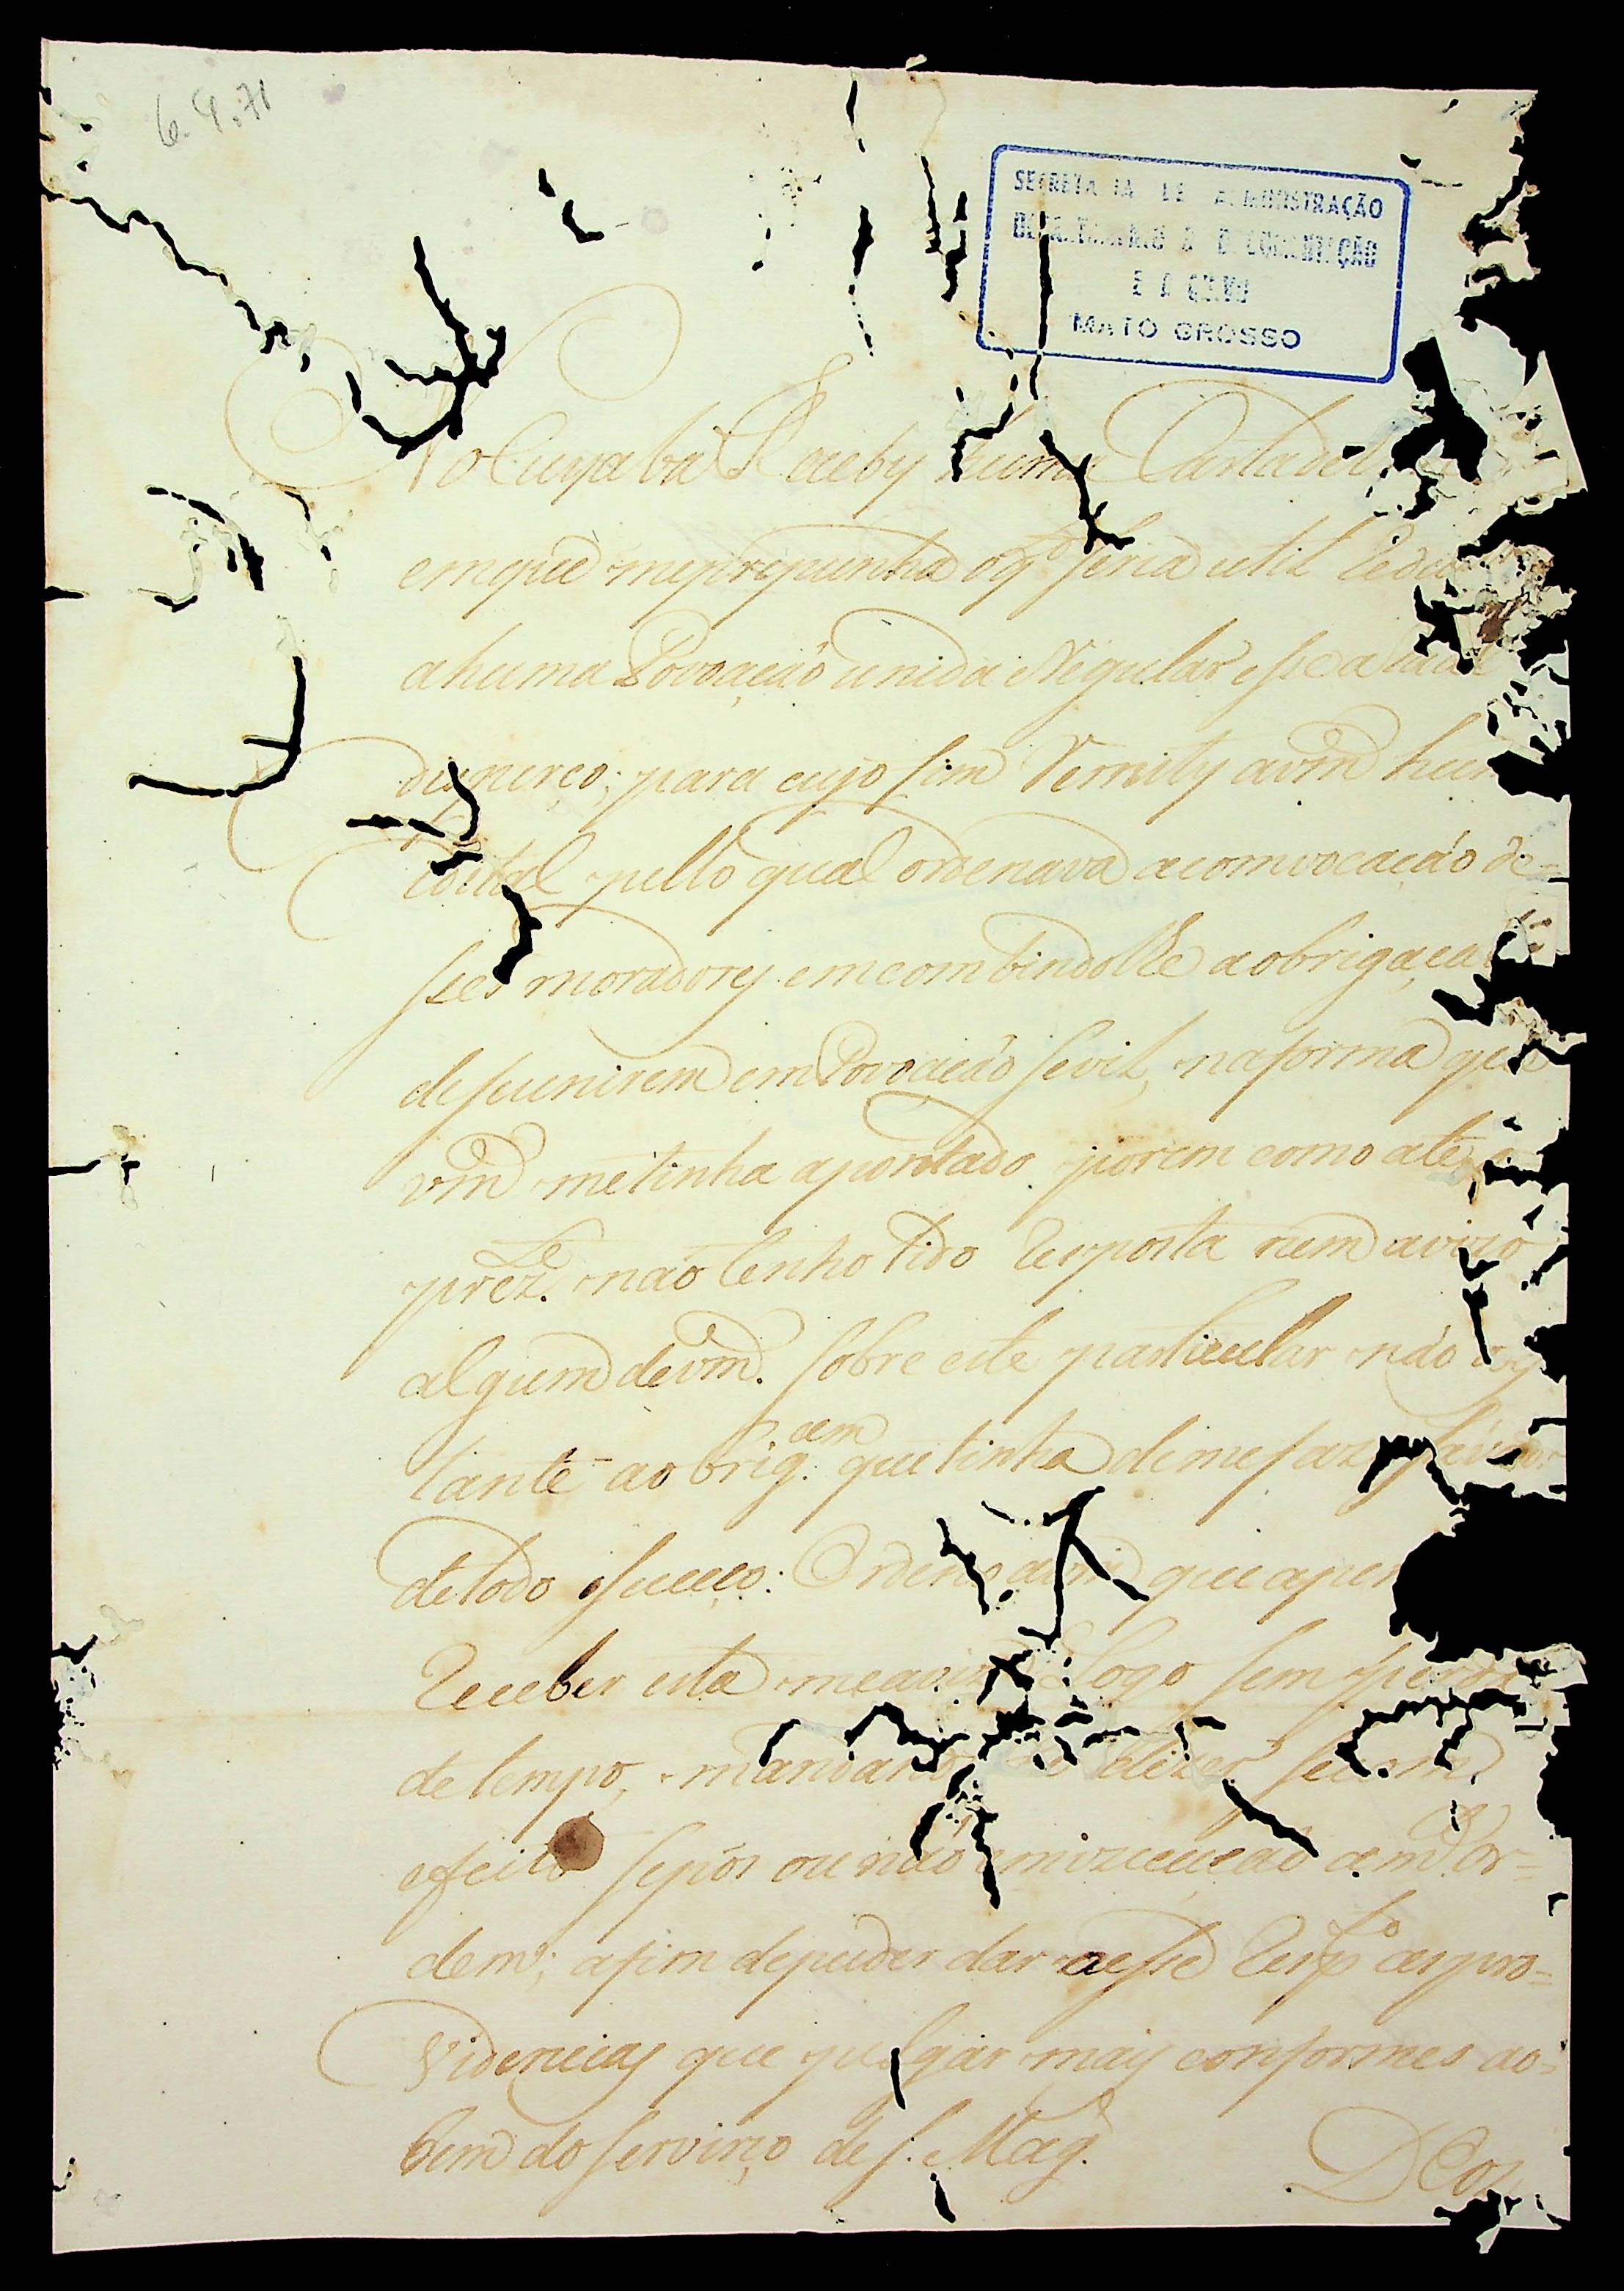 6.9.71
SECRETARIA DE ADMINISTRAÇÃO
DEPARTAMENTO DE DOCUMENTAÇÃO
E ARQUIVO
MATO GROSSO
No Cuyaba Receby huma Carta de
em que me prepunha o q.to seria util
a huma Povoação unida e Regular esse
disperço; para cujo fim Remity a vm hum
Edital pello qual ordenava a comvocação de-
sses moradores emcombindolle a obrigaçao
de se unirem em Povoação sevil, na forma que
vm me tinha apontado. porem como ate o
prez.te não tenho tido resposta nem avizo
algum de vm. sobre este particular não obs
tante a obrig.cam que tinha de me fazer
de todo o suceço: Ordeno a vm que apen
Receber esta me avize logo sem perda
de tempo, mandando dizer se em
efeito se pós ou não em vzecucão a m.a or=
dem; afim de puder dar a esse resp.to as pro=
videncias que julgar mais conformes ao=
bem do servirço de S. Mag.e
D Cos